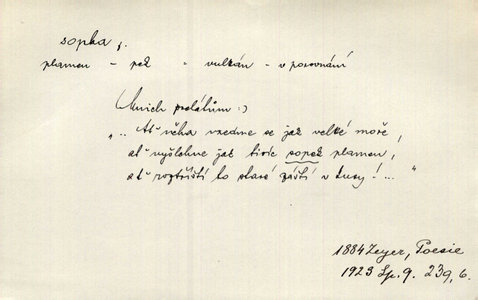 sopka, f.
plamen - rek - vulkán - v porovnání
Mnich prelátům :)
".. Ať něha vzedme se jak velké moře,
ať vyšlehne jak tisíc sopek plamen,
ať roztříští to staré záští v kusy! ... "
1884 Zeyer, Poesie
1923 Sp. 9. 239, 6.